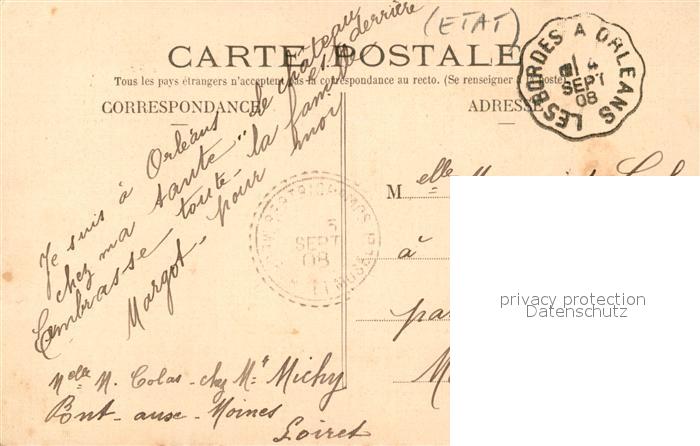 (ETAT)
CARTE POSTALE
Tous les pays étrangers n'acceptent pas la correspondance au recto. (Se renseigner à la poste)
CORRESPONDANCE
ADRESSE
LES BORDES A ORLEANS
4
SEPT
08
Je suis à Orléans
chez ma tante " le château
est derrière
Embrasse toute la famille
pour moi
Margot
5
SEPT
08
Melle
à
privacy protection
Datenschutz
Melle M. Colas chez Mr Michy
Pont-aux-Moines
Loiret